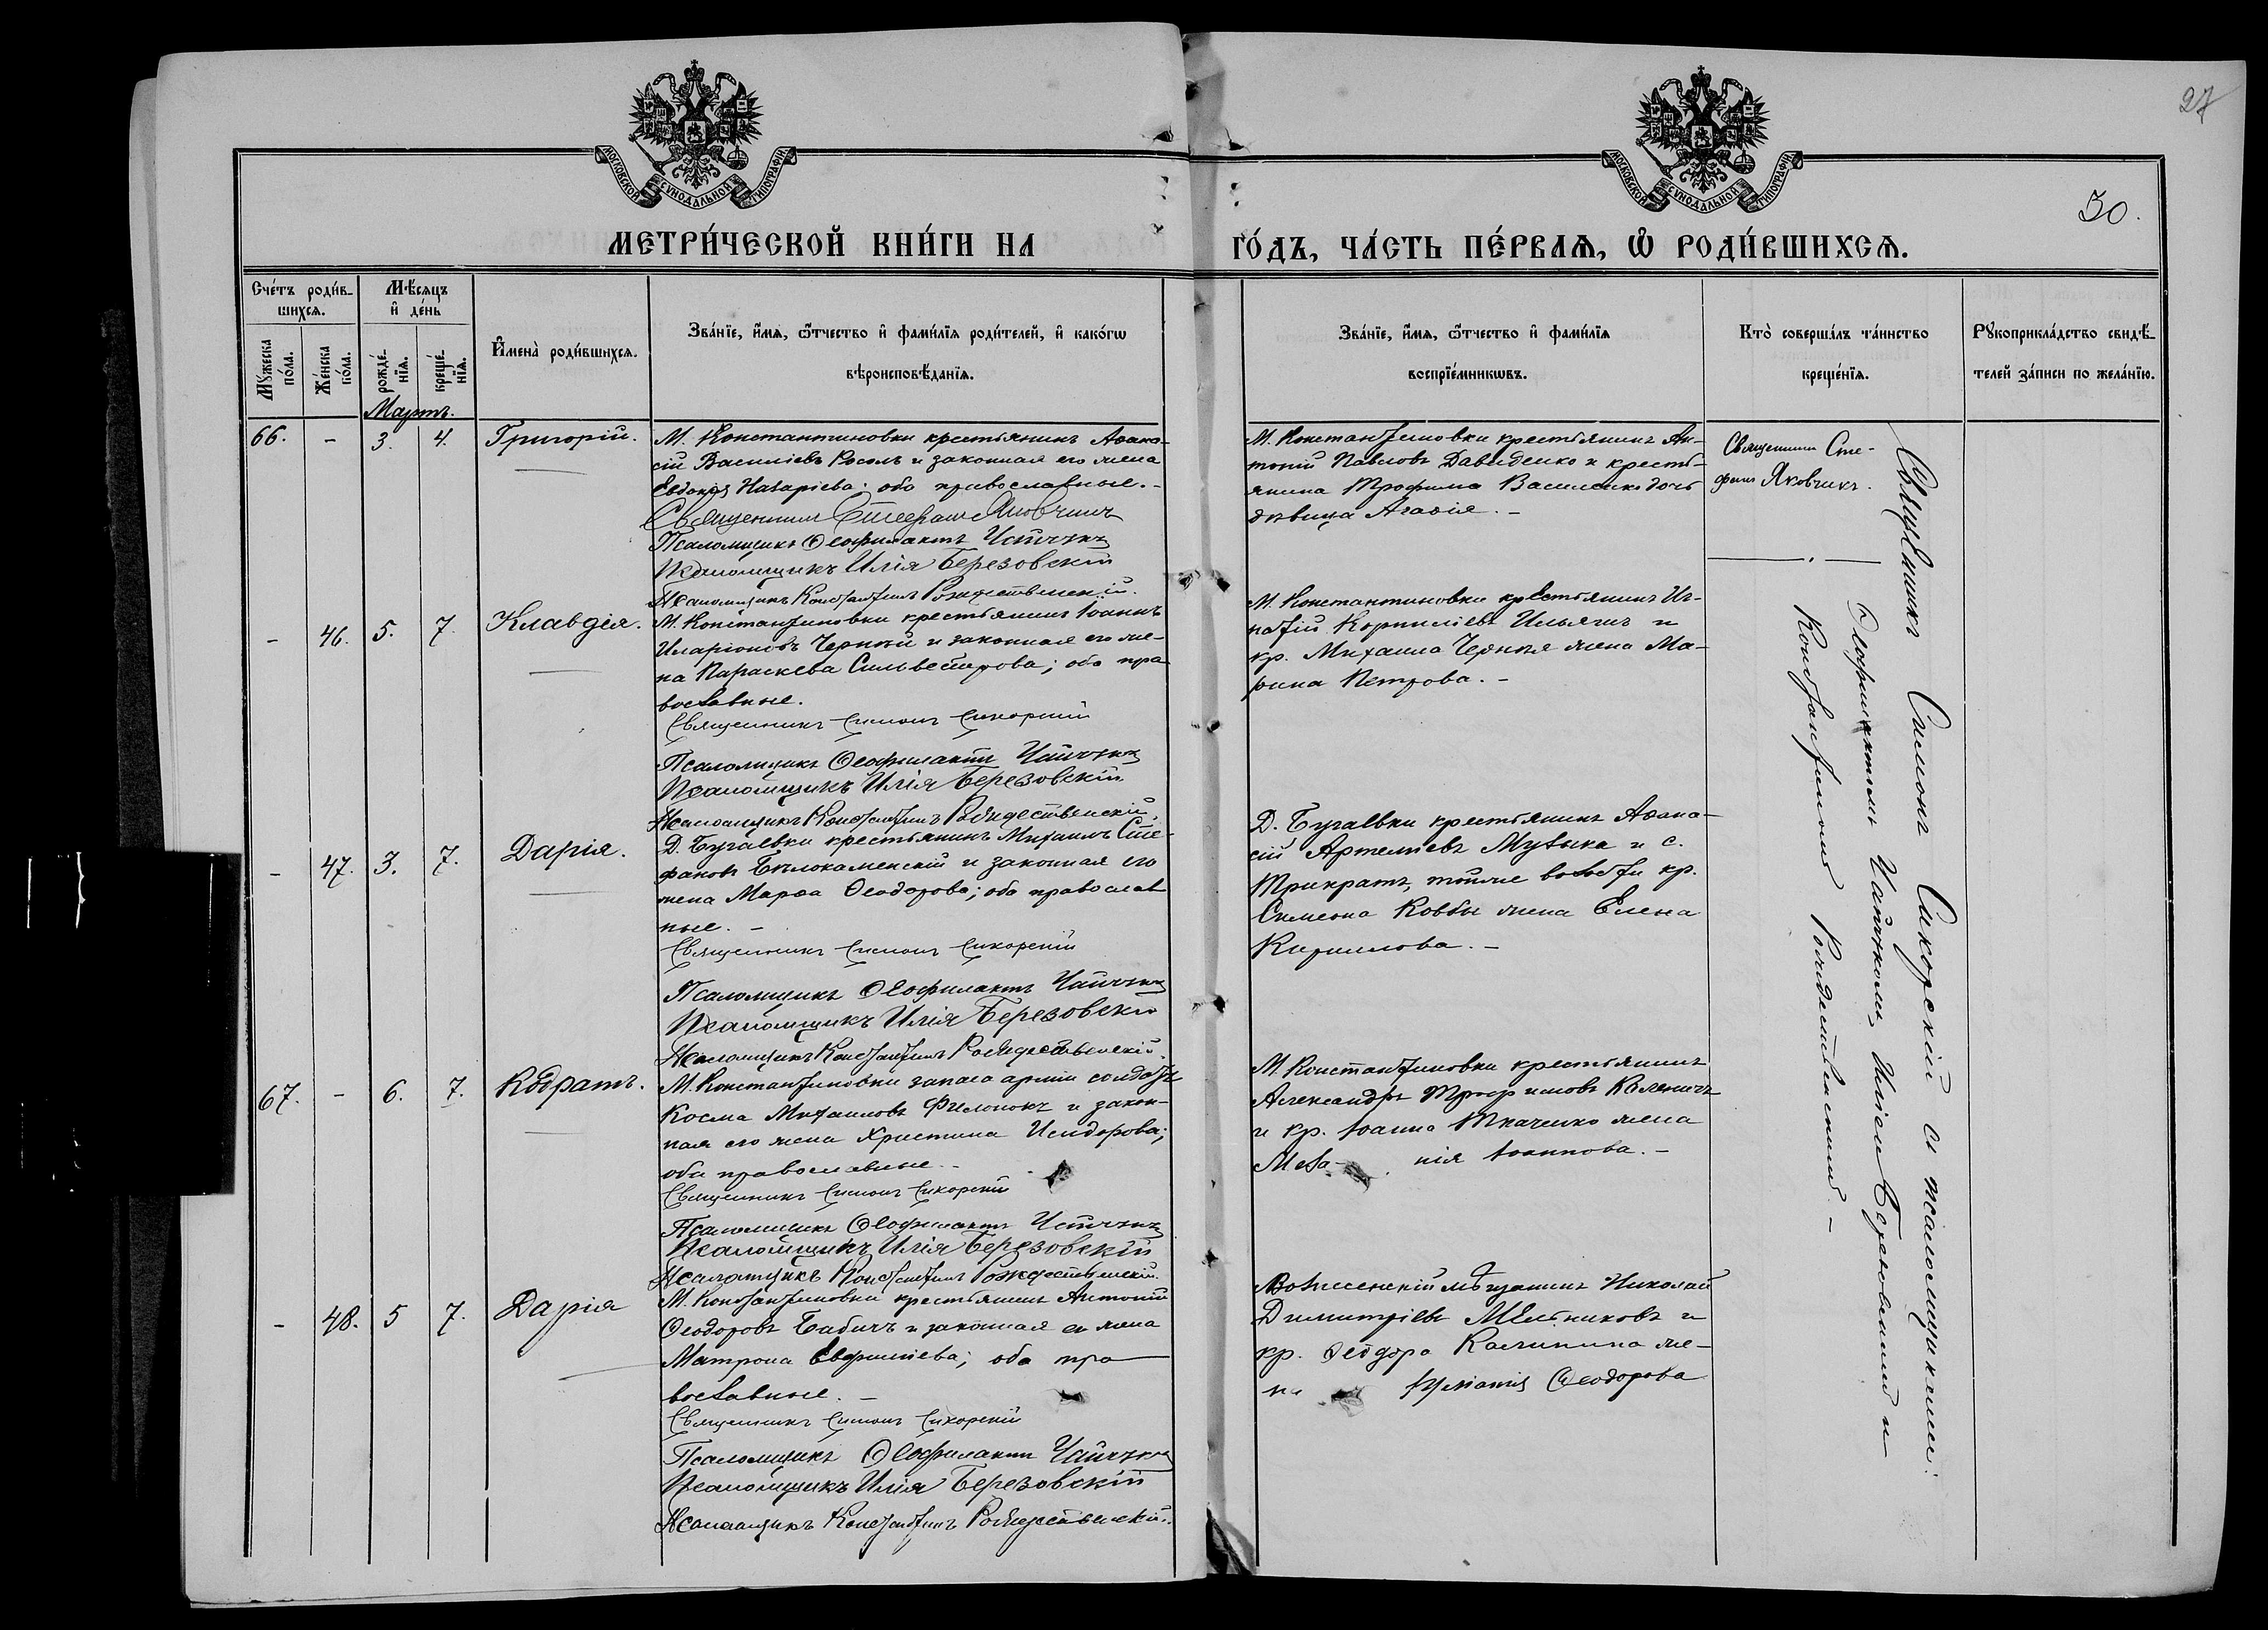 27
МОСКОВСКОЙ СѴНОДАЛЬНОЙ ТИПОГРАФІИ
МОСКОВСКОЙ СѴНОДАЛЬНОЙ ТИПОГРАФІИ
30.
МЕТРИ́ЧЕСКОЙ КНИ́ГИ НА ГО́ДЪ, ЧА́СТЬ ПЕ́РВАѦ, Ѽ РОДИ́ВШИХСѦ.
Сче́тъ роди́в-
шихсѧ.
Мꙋжеска по́ла.
Же́нска по́ла.
Мѣ́сѧцъ
и҆ де́нь
рожде́-
нїѧ.
креще́-
нїѧ.
И҆мена̀ роди́вшихсѧ.
Зва́нїе, и҆́мѧ, ѻ҆́тчество и҆ фами́лїѧ роди́телей, и҆ како́гѡ
вѣроисповѣ́данїѧ.
Зва́нїе, и҆́мѧ, ѻ҆́тчество и҆ фами́лїѧ
воспрїе́мникѡвъ.
Кто̀ соверша́лъ та́инство
креще́нїѧ.
Рꙋкоприкла́дство свидѣ́-
телей за́писи по жела́нїю.
Мартъ.
66. - 3. 4. Григорій.
М. Константиновки крестьянинъ Аѳана-
сій Василіевъ Косолъ и законная его жена
Евдокія Назаріева; оба православные.-
Священникъ Стефанъ Яковчикъ
Псаломщикъ Ѳеофилактъ
Псаломщикъ Илія Березовскій
Псаломщикъ Константинъ Рождественскій.
М. Константиновки крестьянинъ Ан-
тоній Павловъ Давиденко и кресть-
янина Трофима Василенко дочь
дѣвица Агаѳія.-
Священникъ Сте-
фанъ Яковчикъ.
- 46. 5. 7. Клавдія.
М. Константиновки крестьянинъ Іоаннъ
Иларіоновъ Черный и законная его же-
на Параскева Сильвестрова; оба пра
вославные.
Священникъ Симонъ Сикорскій
Псаломщикъ Ѳеофилактъ
Псаломщикъ Илія Березовскій
Псаломщикъ Константинъ Рождественскій.
М. Константиновки крестьянинъ Иг-
натій Корниліевъ Ильягинъ и
кр. Михаила Черныя жена Ма-
рина Петрова.-
- 47. 3. 7. Дарія.
Д. Бугаевки крестьянинъ Михаилъ Сте-
фановъ Бѣлокаменскій и законная его
жена Марѳа Ѳеодорова; оба православ
ные.-
Священникъ Симонъ Сикорскій
Псаломщикъ Ѳеофилактъ
Псаломщикъ Илія Березовскій
Псаломщикъ Константинъ Рождественскій.
Д. Бугаевки крестьянинъ Аѳана-
сій Артеміевъ Музыка и с.
Трикратъ, тойже волости кр.
Симеона Ковбы жена Елена
Кириллова.-
67. - 6. 7. Кодратъ.
М. Константиновки запаса арміи солдатъ
Косма Михаиловъ Филонокъ и закон-
ная его жена Христина Исидорова;
оба православные.-
Священникъ Симонъ Сикорскій
Псаломщикъ Ѳеофилактъ
Псаломщикъ Илія Березовскій
Псаломщикъ Константинъ Рождественскій.
М. Константиновки крестьянинъ
Александръ Трофимовъ
и кр. Іоанна Ткаченко жена
Мела- нія Іоаннова.-
- 48. 5 7. Дарія
М. Константиновки крестьянинъ Антоній
Ѳеодоровъ Бабичъ и законная ег жена
Матрона Евфиміева; оба пра
вославные.-
Священникъ Симонъ Сикорскій
Псаломщикъ Ѳеофилактъ
Псаломщикъ Илія Березовскій
Псаломщикъ Константинъ Рождественскій.
Вознесенскій мѣщанинъ Николай
Димитріевъ Мельниковъ и
кр. Ѳеодора Калинина же-
на Ѳеодорова
Священникъ Симонъ Сикорскій съ псаломщиками:
Ѳеофилактомъ Иліею Березовскимъ и
Константиномъ Рождественскимъ.-